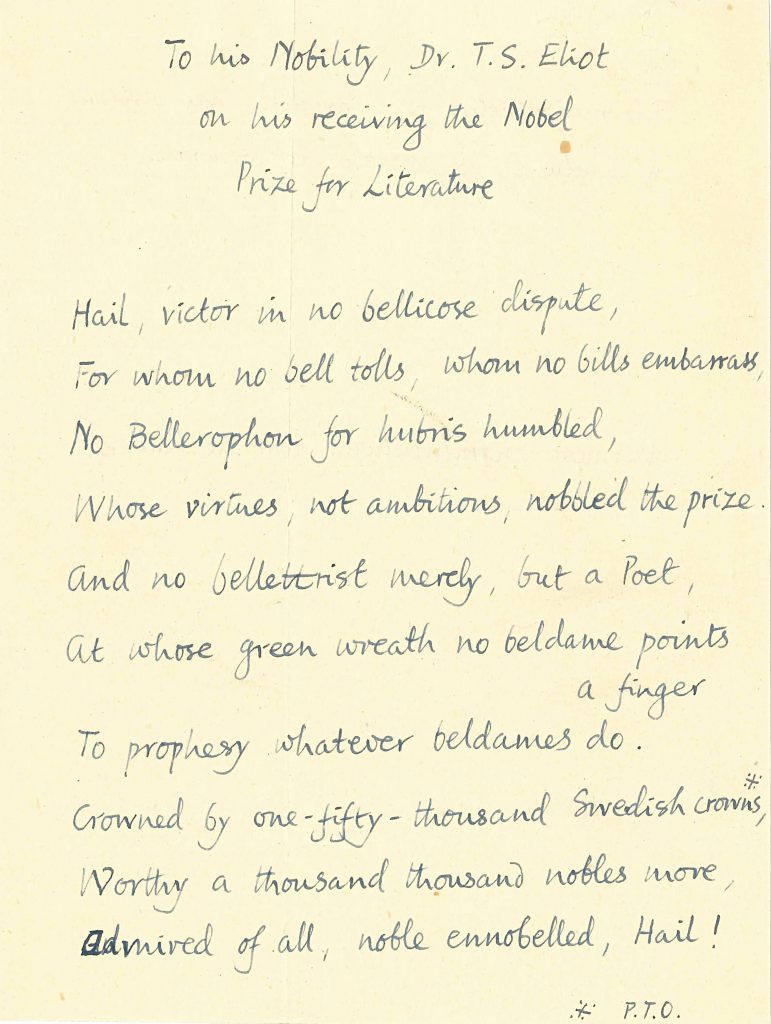 To his Nobility, Dr. T.S. Eliot
on his receiving the Nobel
Prize for Literature
Hail, victor in no bellicose dispute,
For whom no bell tolls, whom no bills embarrass,
No Bellerophon for hubris humbled,
Whose virtues, not ambitions, nobbled the prize.
And no bellettrist merely, but a Poet,
At whose green wreath no beldame points
a finger
To prophesy whatever beldames do.
Crowned by one-fifty-thousand Swedish crowns,*
Worthy a thousand thousand nobles more,
Admired of all, noble ennobelled, Hail!
* P.T.O.